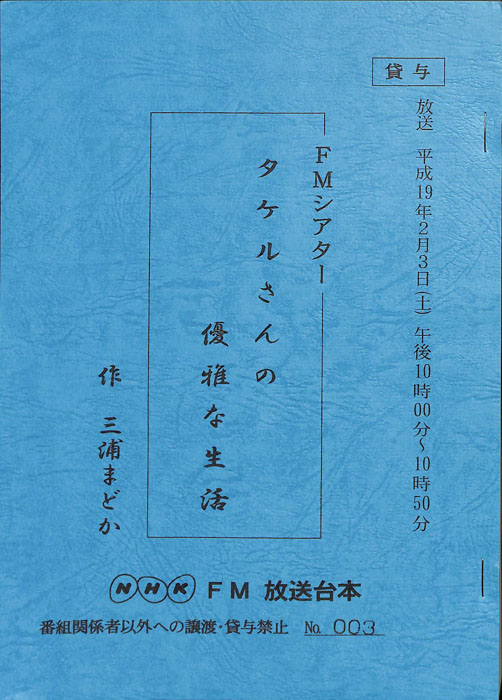 貸与
放送 平成19年2月3日(土) 午後10時00分~10時50分
FMシアター
タケルさんの
優雅な生活
作 三浦まどか
NHK FM 放送台本
番組関係者以外への譲渡・貸与禁止 No. 003